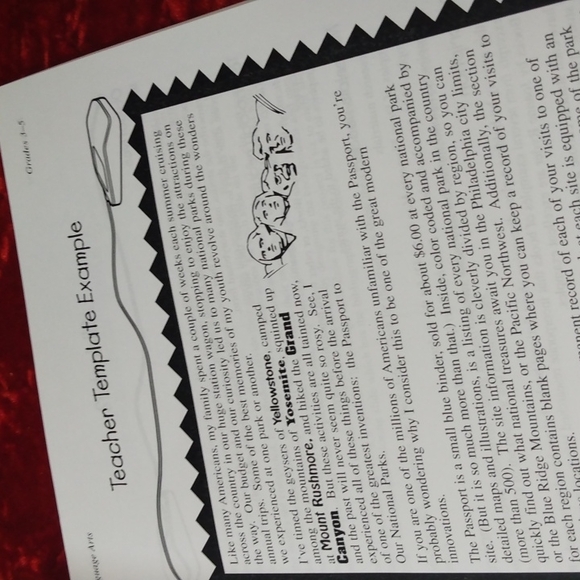 Grades 3–5
Teacher Template Example
Like many Americans, my family spent a couple of weeks each summer cruising
across the country in our huge station wagon, stopping to enjoy the attractions on
the way. Our budget and our curiosity led us to many national parks during these
annual trips. Some of the best memories of my youth revolve around the wonders
we experienced at one park or another.
I've timed the geysers of Yellowstone, camped
among the mountains of Yosemite, squinted up
at Mount Rushmore, and hiked the Grand
Canyon. But these activities are all tainted now,
and the past will never seem quite so rosy. See, I
experienced all of these things before the arrival
of one of the greatest inventions: the Passport to
Our National Parks.
If you are one of the millions of Americans unfamiliar with the Passport, you're
probably wondering why I consider this to be one of the great modern
innovations.
The Passport is a small blue binder, sold for about $6.00 at every national park
site. (But it is so much more than that.) Inside, color coded and accompanied by
detailed maps and illustrations, is a listing of every national park in the country
(more than 500). The site information is cleverly divided by region, so you can
quickly find out what national treasures await you in the Philadelphia city limits,
or the Blue Ridge Mountains, or the Pacific Northwest. Additionally, the section
for each region contains blank pages where you can keep a record of your visits to
record of each of your visits to one of
each site is equipped with an
of the park
locations.
guage Arts